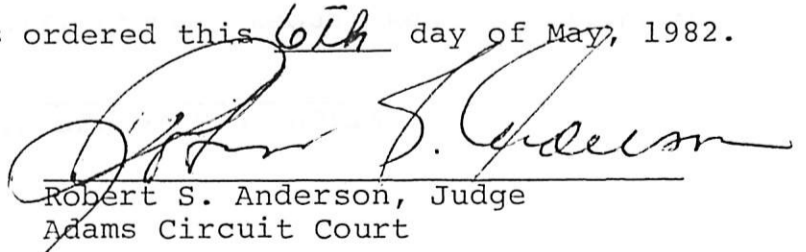 s ordered this 6th day of May, 1982.
S. Anderson
Robert S. Anderson, Judge
Adams Circuit Court